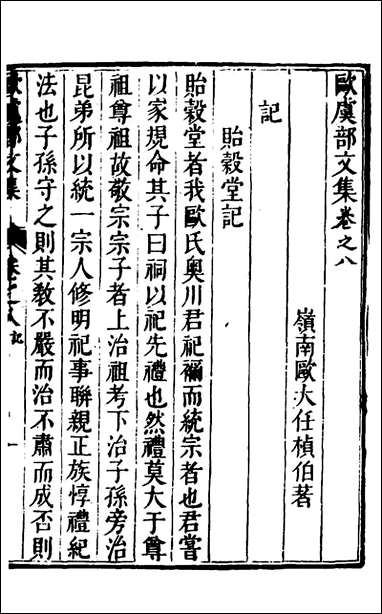 歐虞部文集卷之八
嶺南歐大任楨伯著
記
貽穀堂記
貽穀堂者我歐氏奧川君祀禰而統宗者也君嘗
以家規命其子曰祠以祀先禮也然禮莫大于尊
祖尊祖故敬宗宗子者上治祖考下治子孫旁治
昆弟所以統一宗人修明祀事聯親正族惇禮紀
法也子孫守之則其教不嚴而治不肅而成否則